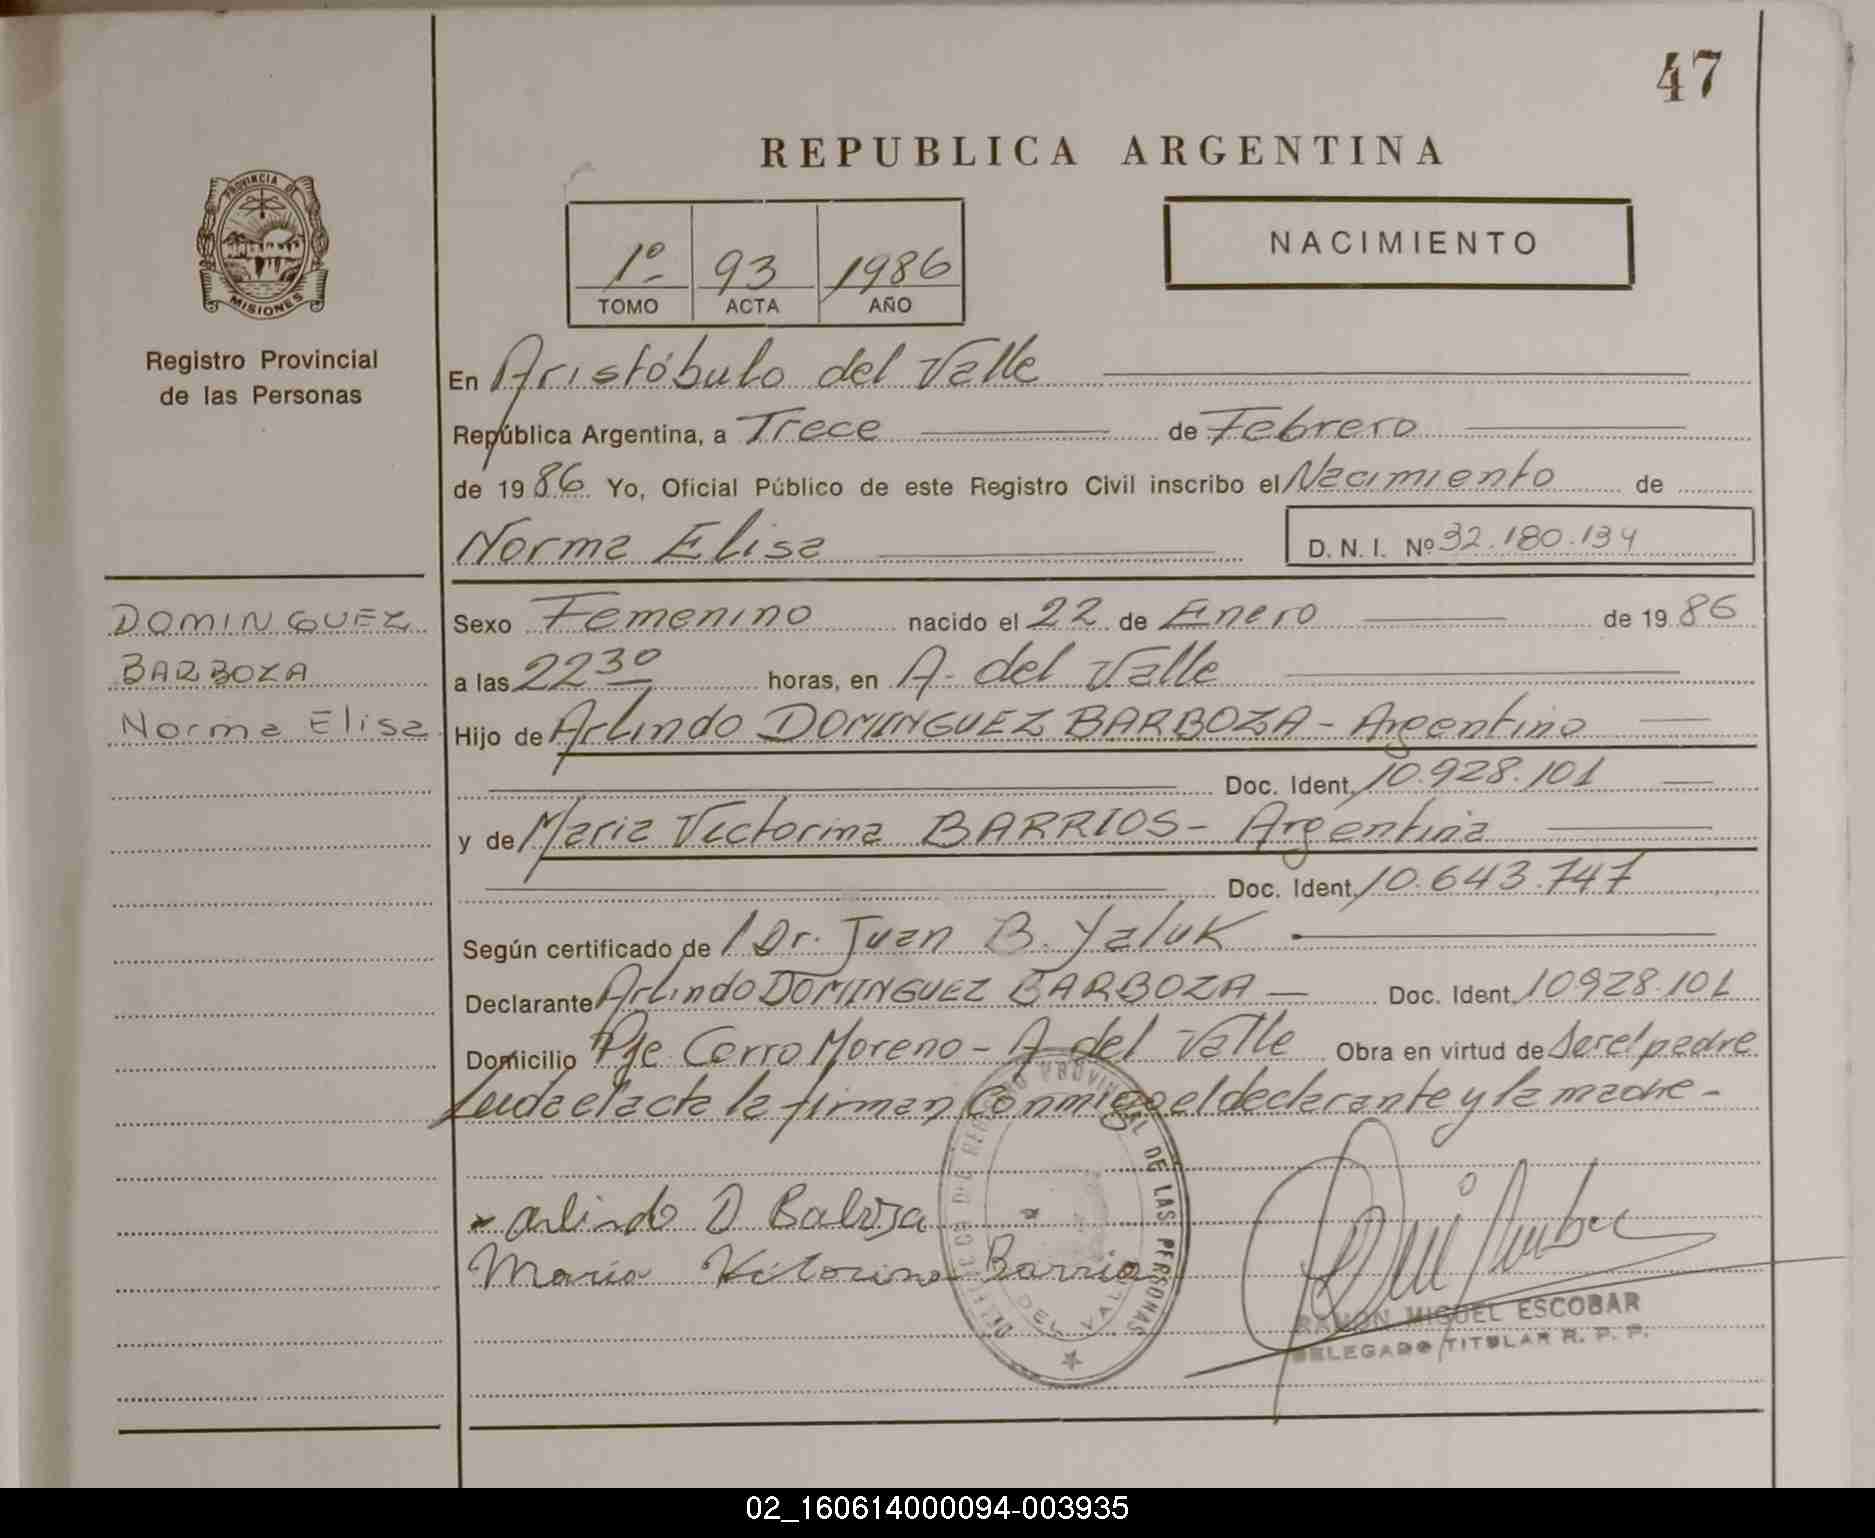 47
REPUBLICA ARGENTINA
PROVINCIA DE
MISIONES
Registro Provincial
de las Personas
1º 93 1986
TOMO ACTA AÑO
NACIMIENTO
En Aristóbulo del Valle
República Argentina, a Trece de Febrero
de 1986 Yo, Oficial Público de este Registro Civil inscribo el Nacimiento de
Norma Elisa D. N. I. Nº 32.180.134
DOMINGUEZ
BARBOZA
Norma Elisa
Sexo Femenino nacido el 22 de Enero de 1986
a las 22 30 horas, en A. del Valle
Hijo de Arlindo DOMINGUEZ BARBOZA - Argentino
Doc. Ident. 10.928.101
y de Maria Victorina BARRIOS - Argentina
Doc. Ident. 10.643.747
Según certificado de Dr. Juan B. Yaluk
Declarante Arlindo DOMINGUEZ BARBOZA Doc. Ident. 10928.101
Domicilio Pje Cerro Moreno - A del Valle Obra en virtud de ser el padre
Leida el acta la firman Conmigo el declarante y la madre -
arlindo D Balvoza
Maria Vitorina Barrio
REGISTRO PROVINCIAL DE LAS PERSONAS
DEL VALLE
RAMON MIGUEL ESCOBAR
DELEGADO TITULAR R. P. P.
02_160614000094-003935